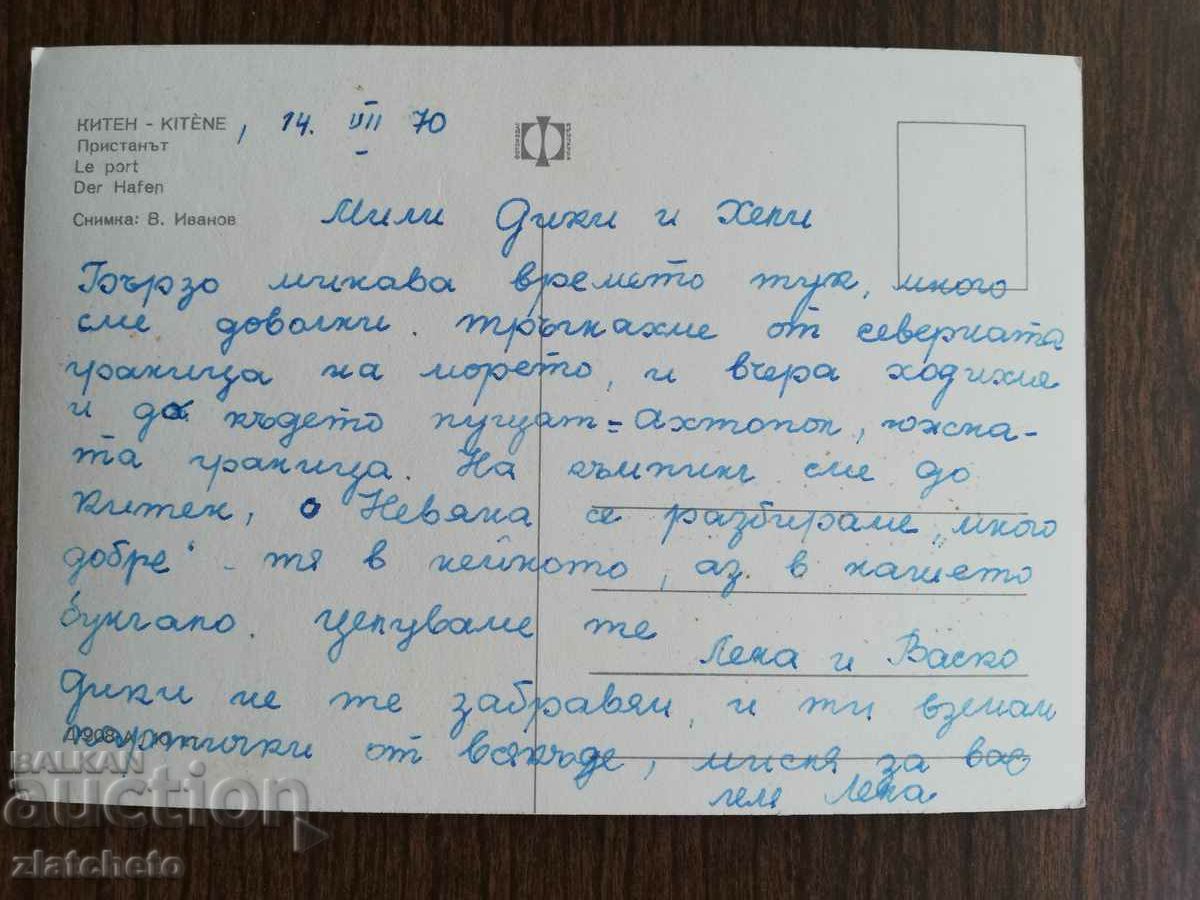 КИТЕН - KITÈNE , 14. VII 70
Пристанът
Le port
Der Hafen
Снимка: В. Иванов
ФОТОИЗДАТ БЪЛГАРИЯ
Мили Дики и Хепи
Бързо минава времето тук, много
сме доволни. тръгнахме от северната
граница на морето, и вчера ходихме
и до където пущат = Ахтопол, южна-
та граница. На къмпинг сме до
Китен, с Невяна се разбираме „много
добре“ - тя в нейното, аз в нашето
бунгало. Целуваме те
Лена и Васко
Дики не те забравям, и ти вземам
картички от всякъде, мисля за вас
леля Лена
BALKAN
auction
zlatcheto